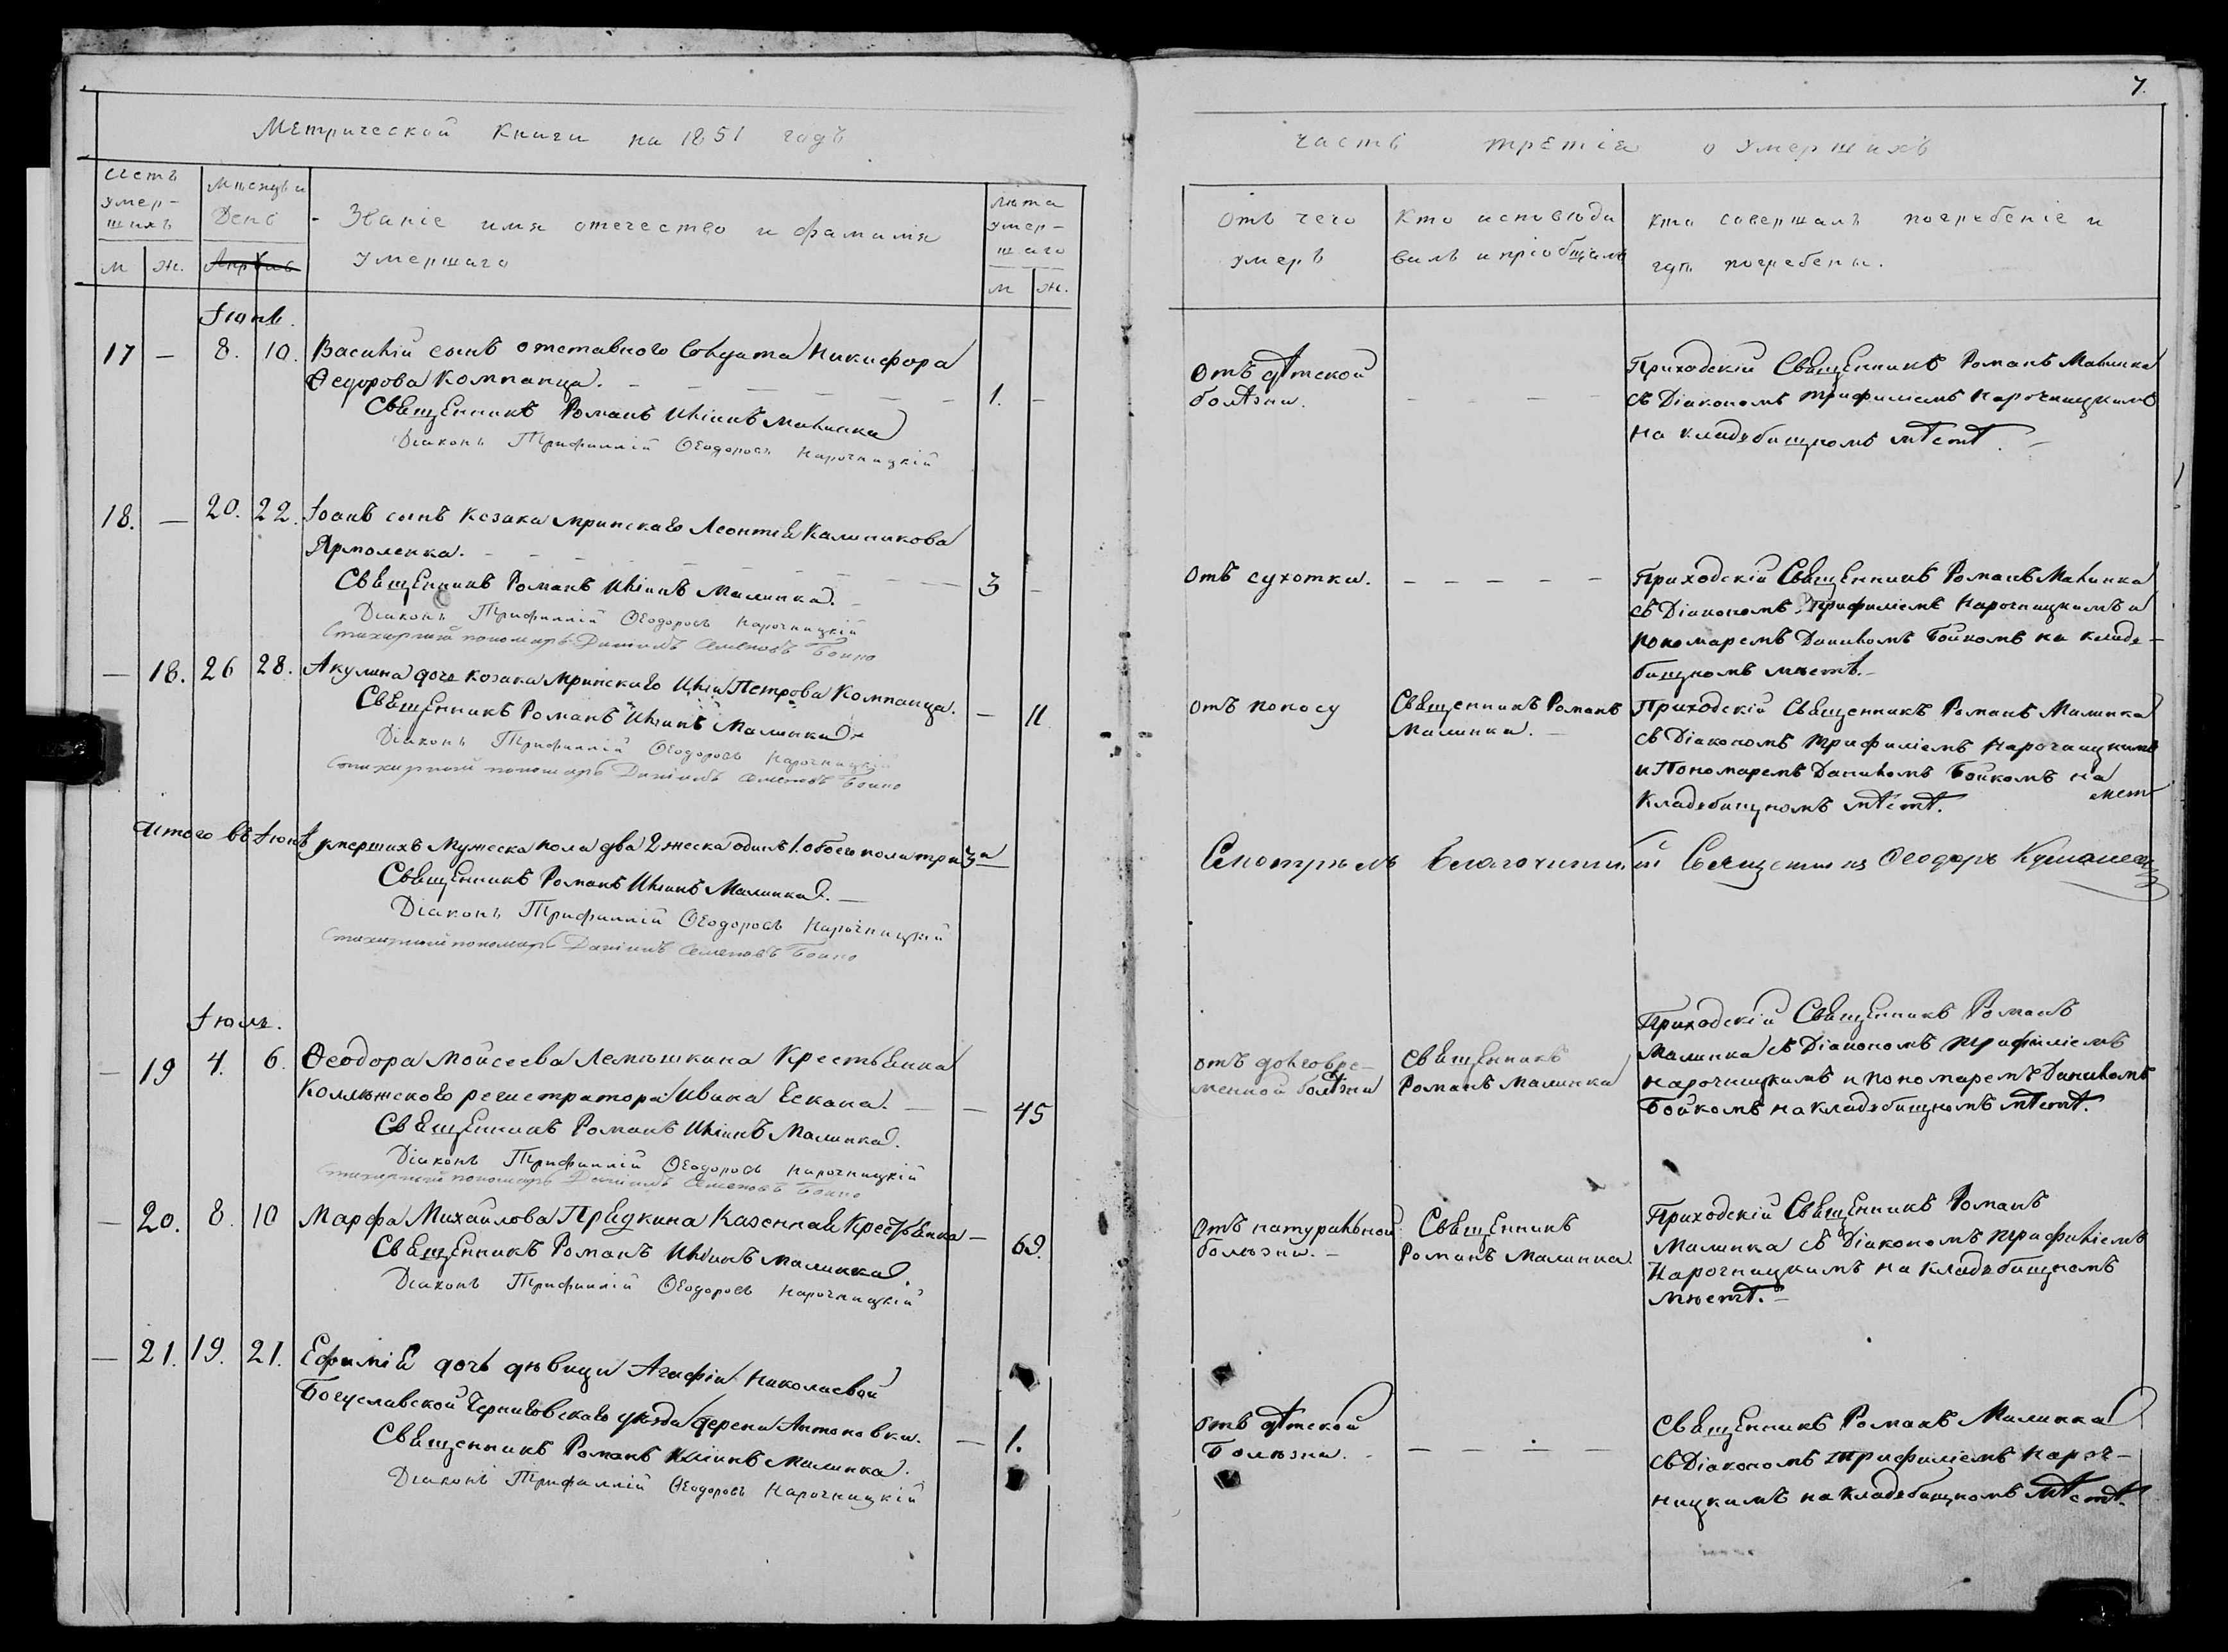 Метрической Книги на 1851 годъ
Счетъ умер-шихъ
Мѣсяцъ и День
Званіе имя отечество и фамилія умершаго
Лѣта умер-шаго
М Ж.
Апрѣль
М Ж.
Іюнь.
17 — 8. 10. Василій сынъ отставного Солдата Никифора
Ѳедорова Компанца. — 1. —
Священникъ Романъ Иліинъ Малинка
Діаконъ Трифиллій Ѳеодоровъ Нарочницкій
18. — 20. 22. Іоанъ сынъ Козака Мринскаго Леонтія Калиникова
Ярмоленка. — 3 —
Священникъ Романъ Иліинъ Малинка.
Діаконъ Трифиллій Ѳеодоровъ Нарочницкій
Стихарный пономарь Даніилъ Семеновъ Бойко
— 18. 26 28. Акулина дочь козака Мринскаго Иліи Петрова Компанца. — 11
Священникъ Романъ Иліинъ Малинка
Діаконъ Трифиллій Ѳеодоровъ Нарочницкій
Стихарный пономарь Даніилъ Семеновъ Бойко
Итого въ Іюнѣ умершихъ Мужеска пола два 2 жеска одинъ 1. обоего пола три 3
Священникъ Романъ Иліинъ Малинка. —
Діаконъ Трифиллій Ѳеодоровъ Нарочницкій
Стихарный пономарь Даніилъ Семеновъ Бойко
Іюль.
— 19 4. 6. Ѳеодора Мойсеева Лемѣшкина Крестьянка
Коллѣжского регистратора Ивана Ескака. — — 45
Священникъ Романъ Иліинъ Малинка.
Діаконъ Трифиллій Ѳеодоровъ Нарочницкій
Стихарный пономарь Даніилъ Семеновъ Бойко
— 20. 8. 10 Марфа Михайлова Предкина Казенная Крестьянка — 69.
Священникъ Романъ Иліинъ Малинка.
Діаконъ Трифиллій Ѳеодоровъ Нарочницкій
— 21. 19. 21. Ефимія дочь дѣвици Агафіи Николаевой
Богуславской Черниговскаго уѣзда дерени Антоновки. — 1.
Священникъ Романъ Иліинъ Малинка.
Діаконъ Трифиллій Ѳеодоровъ Нарочницкій
7.
часть третія о умершихъ
Отъ чего умеръ
Кто исповѣдывалъ и пріобщалъ
Кто совершалъ погребеніе и
гдѣ погребены.
Отъ дѣтской
болѣзни.
— — — —
Приходскій Священникъ Романъ Малинка
съ Діакономъ Трифиліемъ Нарочницкимъ
на кладъбищномъ мѣстѣ.
Отъ сухотки.
— — — — —
Приходскій Священникъ Романъ Малинка
съ Діакономъ Трифиліемъ Нарочницкимъ и
пономаремъ Даниломъ Бойкомъ на кладъ-
бищномъ мѣстѣ. —
Отъ поносу
Священникъ Романъ
Малинка. —
Приходскій Священникъ Романъ Малинка
съ Діакономъ Трифиліемъ Нарочницкимъ
и Пономаремъ Даниломъ Бойкомъ на
Кладъбищномъ мѣстѣ.
Смотрѣлъ Благочинный Священникъ Ѳеодоръ
Отъ долговре-
менной болѣзни
Священникъ
Романъ Малинка
Приходскій Священникъ Романъ
Малинка съ Діакономъ Трифиліемъ
Нарочницкимъ и пономаремъ Даниломъ
Бойкомъ на Кладъбищномъ мѣстѣ.
Отъ натуральной
болѣзни. —
Священникъ
Романъ Малинка.
Приходскій Священникъ Романъ
Малинка съ Діакономъ Трифиліемъ
Нарочницкимъ на Кладъбищномъ
мѣстѣ. —
Отъ дѣтской
Болѣзни. —
— — — —
Священникъ Романъ Малинка
съ Діакономъ Трифиліемъ Нароч-
ницкимъ на Кладъбищномъ мѣстѣ.